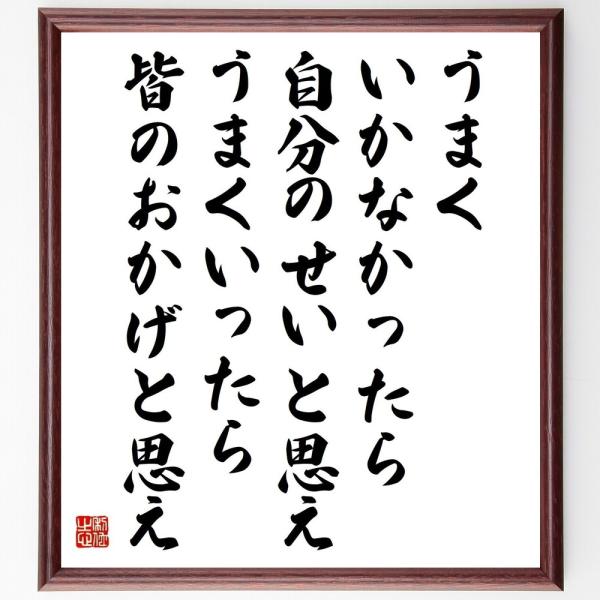 うまく
いかなかったら
自分のせいと思え
うまくいったら
皆のおかげと思え